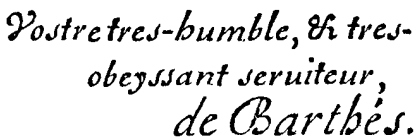 Vostre tres-humble, & tres-
obeyssant seruiteur,
de Barthés.